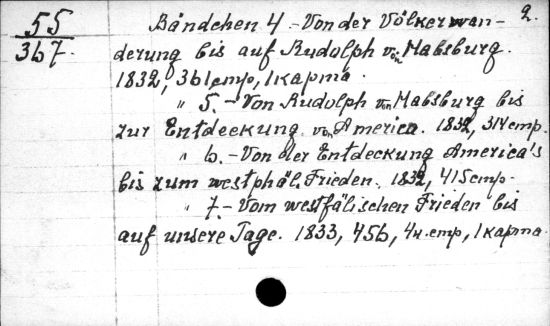 2.
55
367.
Bändchen 4.-Von der Völkerwan-
derung bis auf Rudolph von Habsburg.
1832, 361 стр, 1 карта.
" 5.-Von Rudolph von Habsburg bis
zur Entdeckung von America. 1832, 314 стр.
" 6.-Von der Entdeckung America's
bis zum westphäl. Frieden. 1832, 415 стр.
" 7.-Vom westfälischen Frieden bis
auf unsere Tage. 1833, 456, 4 н. стр, 1 карта.